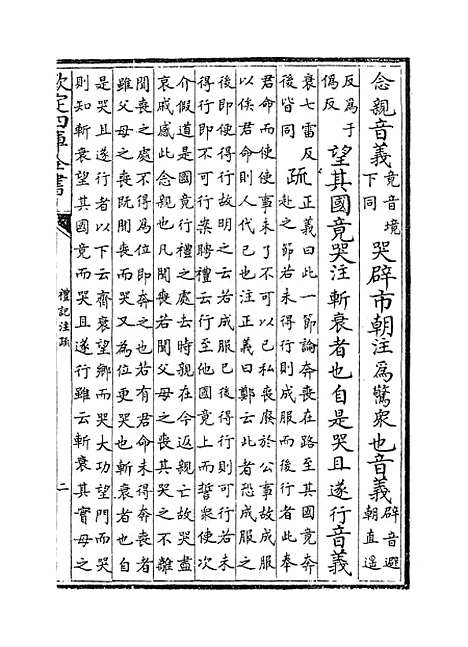 念親音義竟音境下同 哭辟市朝注為驚衆也音義辟音避朝直遥
反為于偽反 望其國竟哭注斬衰者也自是哭且遂行音義
衰七雷反後皆同 疏正義曰此一節論奔喪在路至其國竟奔赴之節若未得行則成服而後行者此奉
君命而使使事未了不可以已私喪廢於公事故成服以俟君命則人代已也注正義曰鄭云此者恐成服之
後即使得行故明之云若成服已後得行則可行若未得行即不可行案聘禮云行至他國竟上而誓衆使次
介假道是國竟行禮之處去時親在今返親亡故哭盡哀戚感此念親也凡聞喪若聞父母之喪其哭之不離
聞喪之處不得為位即奔之也若有君命未得奔喪者雖父母之喪既聞喪而哭又為位更哭也斬衰者也自
是哭且遂行者以下云齊衰望鄉而哭大功望門而哭則知斬衰望其國竟而哭且遂行雖云斬衰其實母之
欽定四庫全書
禮記注疏
二